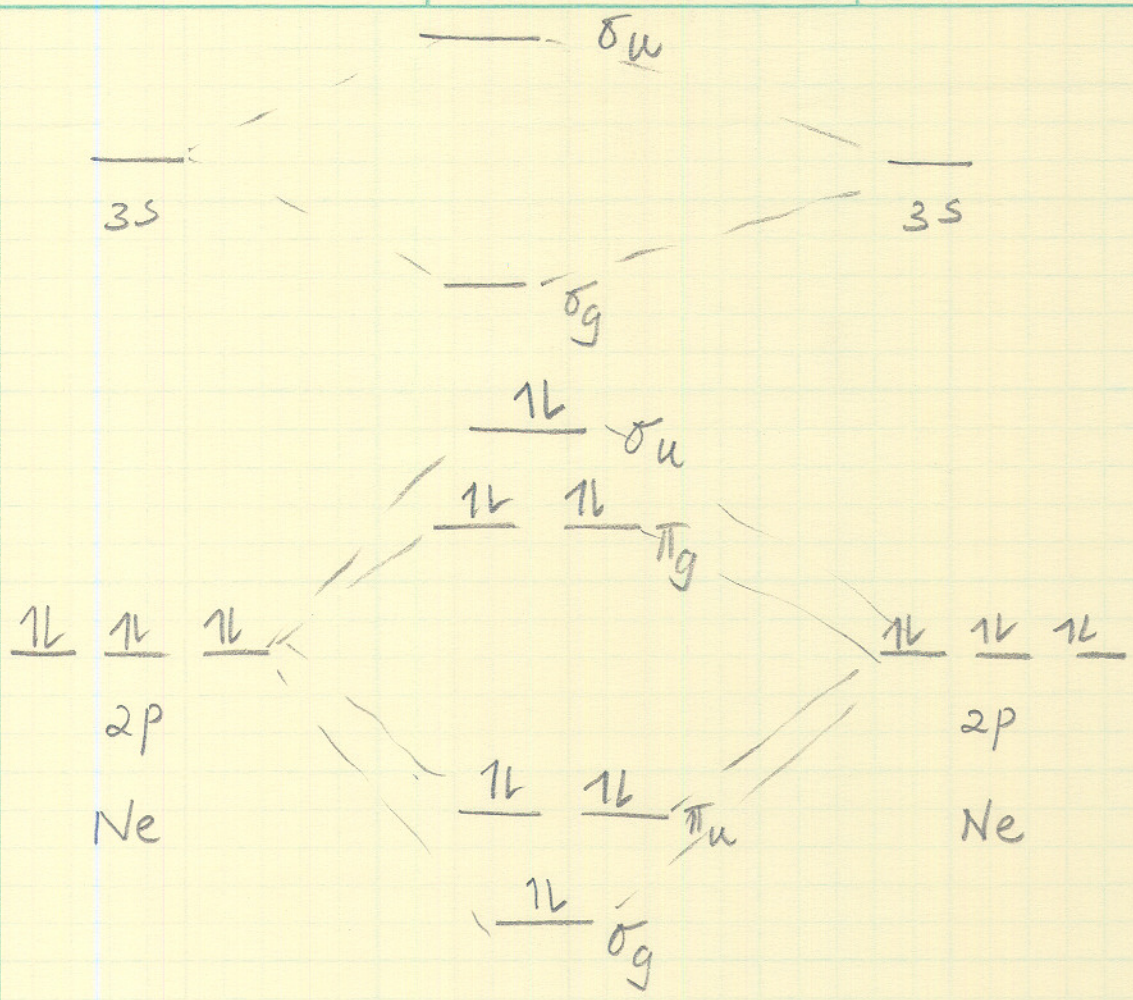 σu
3s 3s
σg
1L
σu
1L 1L
πg
1L 1L 1L 1L 1L 1L
2p 2p
1L 1L
Ne πu Ne
1L
σg